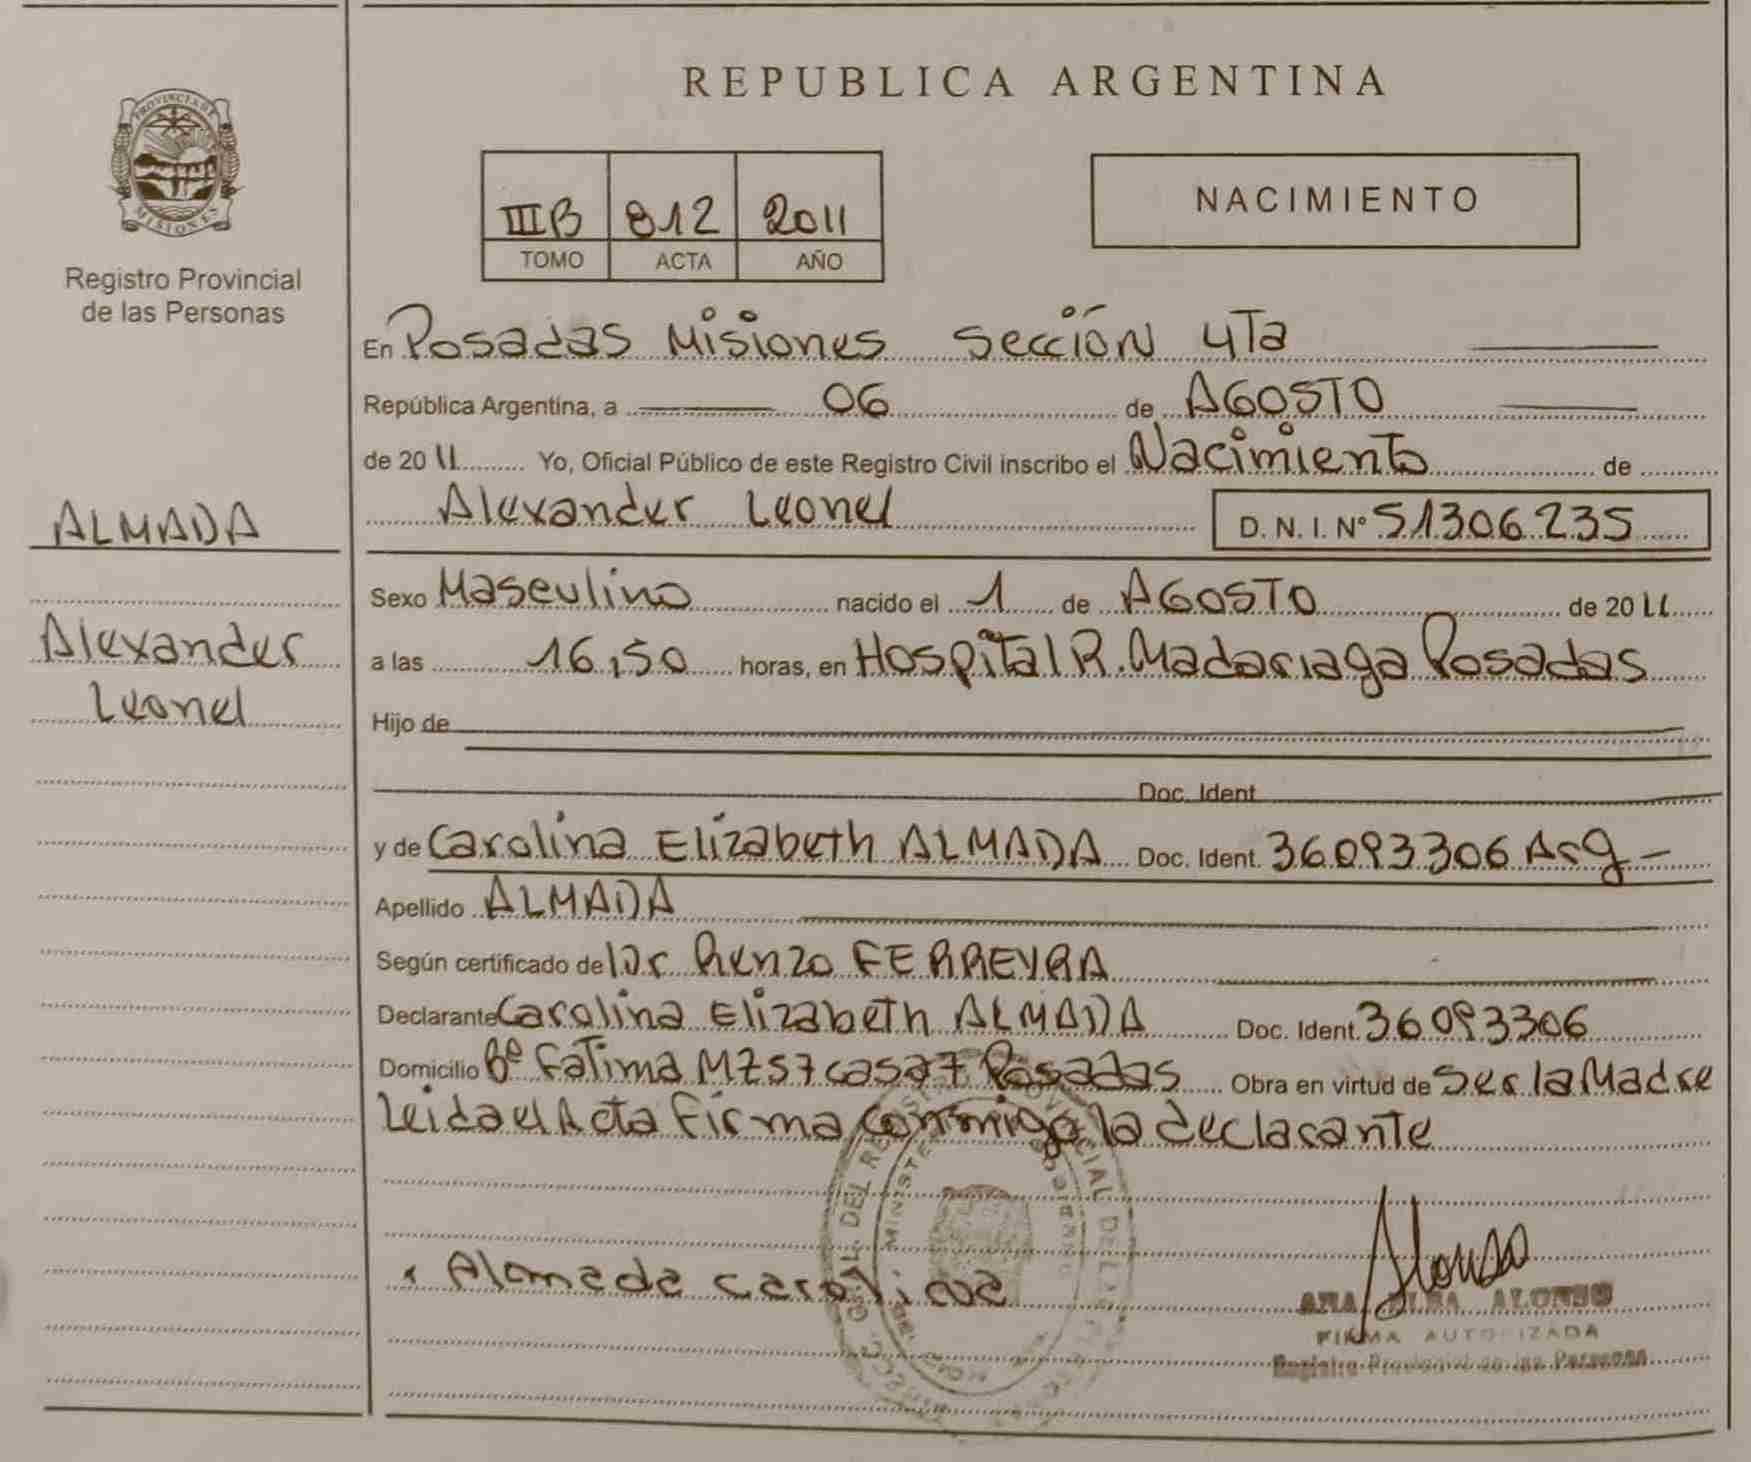 PROVINCIA DE
MISIONES
Registro Provincial
de las Personas
ALMADA
Alexander
Leonel
REPUBLICA ARGENTINA
IIIB 812 2011
TOMO ACTA AÑO
NACIMIENTO
En Posadas Misiones Sección 4Ta
República Argentina, a 06 de AGOSTO
de 2011 Yo, Oficial Público de este Registro Civil inscribo el Nacimiento de
Alexander Leonel D. N. I. Nº 51306235
Sexo Masculino nacido el 1 de AGOSTO de 2011
a las 16,50 horas, en Hospital R. Madariaga Posadas
Hijo de
Doc. Ident
y de Carolina Elizabeth ALMADA Doc. Ident. 36093306 Arg -
Apellido ALMADA
Según certificado del Dr Renzo FERREYRA
Declarante Carolina Elizabeth ALMADA Doc. Ident. 36093306
Domicilio Bº Fatima MZ57 casa7 Posadas Obra en virtud de Ser la Madre
Leida el Acta Firma conmigo la declarante
Alonso
ANA ALONSO
FIRMA AUTORIZADA
Registro Provincial de las Personas